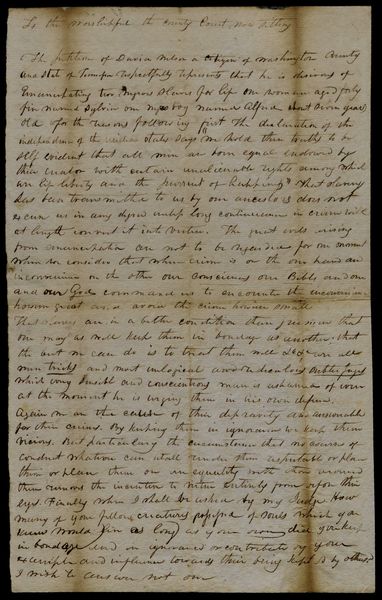 To the worshippful the County Court now sitting
The petition of David Nelson a citizen of Washington County
and State of Tennessee respectfully represents that he is desirous of
Emancipating two Negroes Slaves for life one woman aged forty
five named Sylvia one negro boy named Alfred about seven years
old for the reasons following first The declaration of the
independence of the united States says "We hold these truths to be
self evident that all men are born equal endowed by
their creator with certain unalienable rights among which
are life liberty and the pursuit of happiness" That slavery
has been transmitted to us by our ancestors does not
excuse us in any degree unless long continuance in crime will
at length convert it into virtue. The great evils arising
from emancipation are not to be regarded for one moment
when we consider that when crime is on the one hand an
inconvenience on the other our consciences our Bibles and our
and our God command us to encounter the inconvenience
however great and avoid the crime however small
That slaves are in a better condition than free men that
one may as well keep them in bondage as another that
the best we can do is to treat them well &c &c are all
mere tricks and most unlogical and ridiculous subterfuges
which every sensible and conscientious man is ashamed of even
at the moment he is urging them in his own defence.
Again we are the cause of their depravity and answerable
for their crimes. By keeping them in ignorance we keep them
vicious. But particularly the circumstance that no course of
conduct whatever can at all render them respectable or place
them or place them on an equality with those around
them removes the incentive to virtue entirely from before their
eyes. Finally when I shall be asked by my Judge How
many of your fellow creatures possessed of souls which you
knew would live as long as your own did you keep
in bondage and in ignorance or contribute by your
example and influence towards their being kept so by others
I wish to answer not one